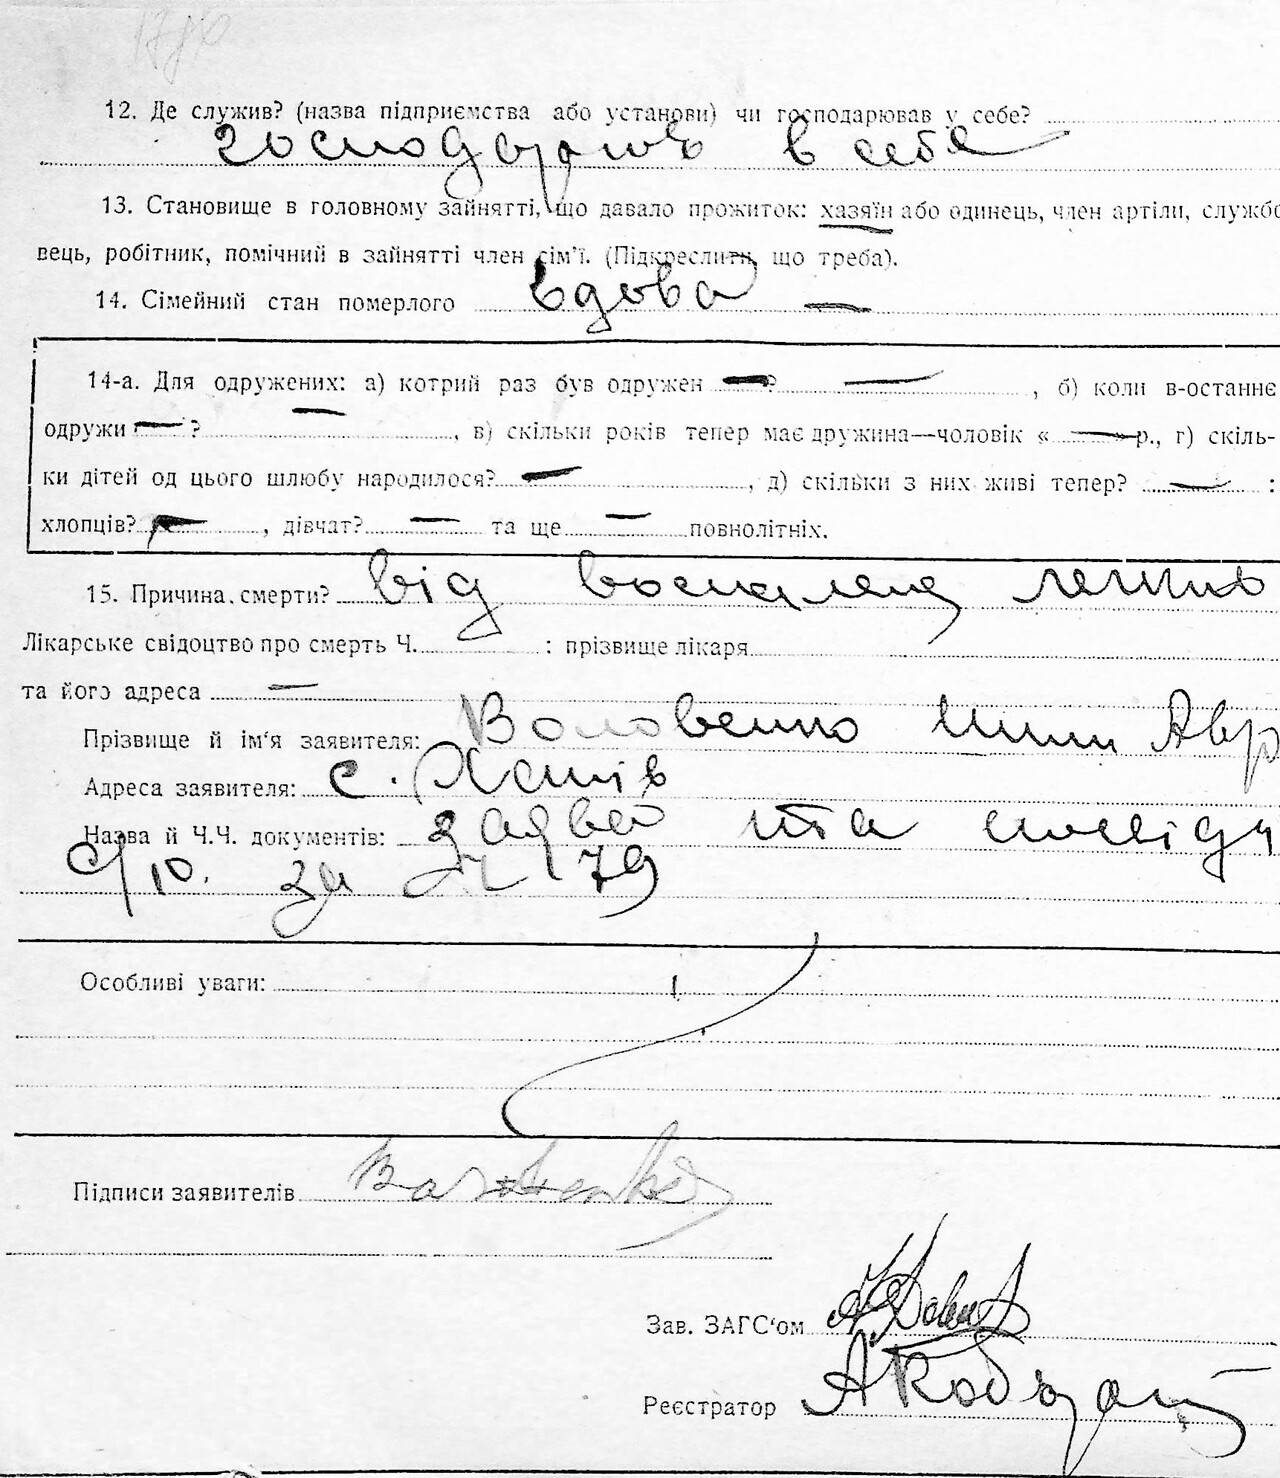 12. Де служив? (назва підприємства або установи) чи господарював у себе?
господарюв в себе
13. Становище в головному зайнятті, що давало прожиток: хазяїн або одинець, член артіли, службо
вець, робітник, помічний в зайнятті член сім'ї. (Підкреслити, що треба).
14. Сімейний стан померлого вдова —
14-а. Для одружених: а) котрий раз був одружен —? —, б) коли в-останнє
одружи — ? —, в) скільки років тепер має дружина—чоловік « — » р., г) скіль-
ки дітей од цього шлюбу народилося? —, д) скільки з них живі тепер? — :
хлопців? —, дівчат? — та ще — повнолітніх.
15. Причина смерти? від
Лікарське свідоцтво про смерть Ч. : прізвище лікаря
та його адреса —
Прізвище й ім'я заявителя: Воловенко Авр
Адреса заявителя: с.
Назва й Ч.Ч. документів: заява та
с/ю. за 79
Особливі уваги:
Підписи заявителів
Зав. ЗАГС'ом
Реєстратор